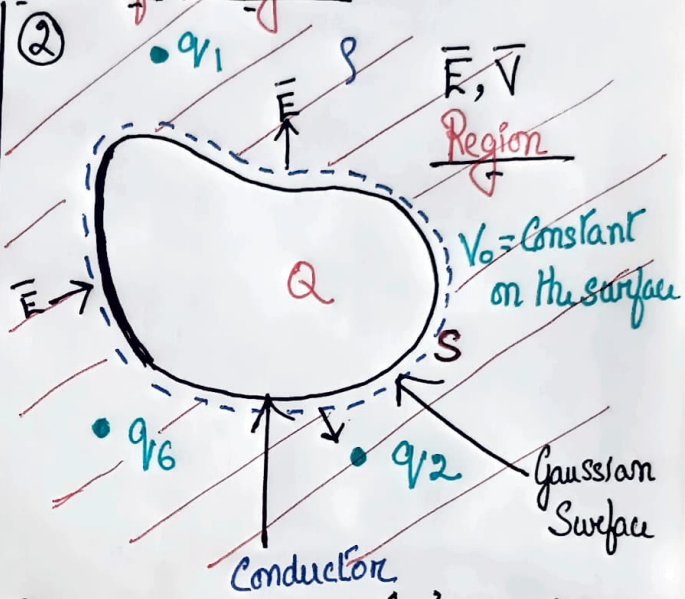 ②
q1
ρ
E̅, V̅
Region
E̅
V₀ = Constant
on the surface
Q
E̅
S
q6
q2
Gaussian
Surface
Conductor